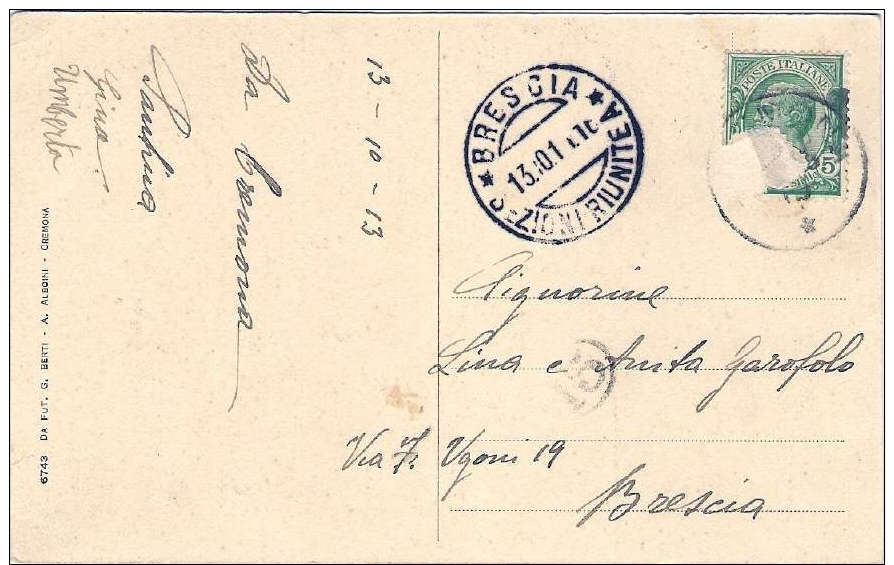 13-10-13
Da Cremona
Paolina
Gina
Umberto
6743 DA FOT. G. BERTI - A. ALBOINI - CREMONA
BRESCIA
13.10.1
RIUNITE
POSTE ITALIANE
5
Signorine
Lina e Anita Garofolo
Via F. Ugoni 19
Brescia